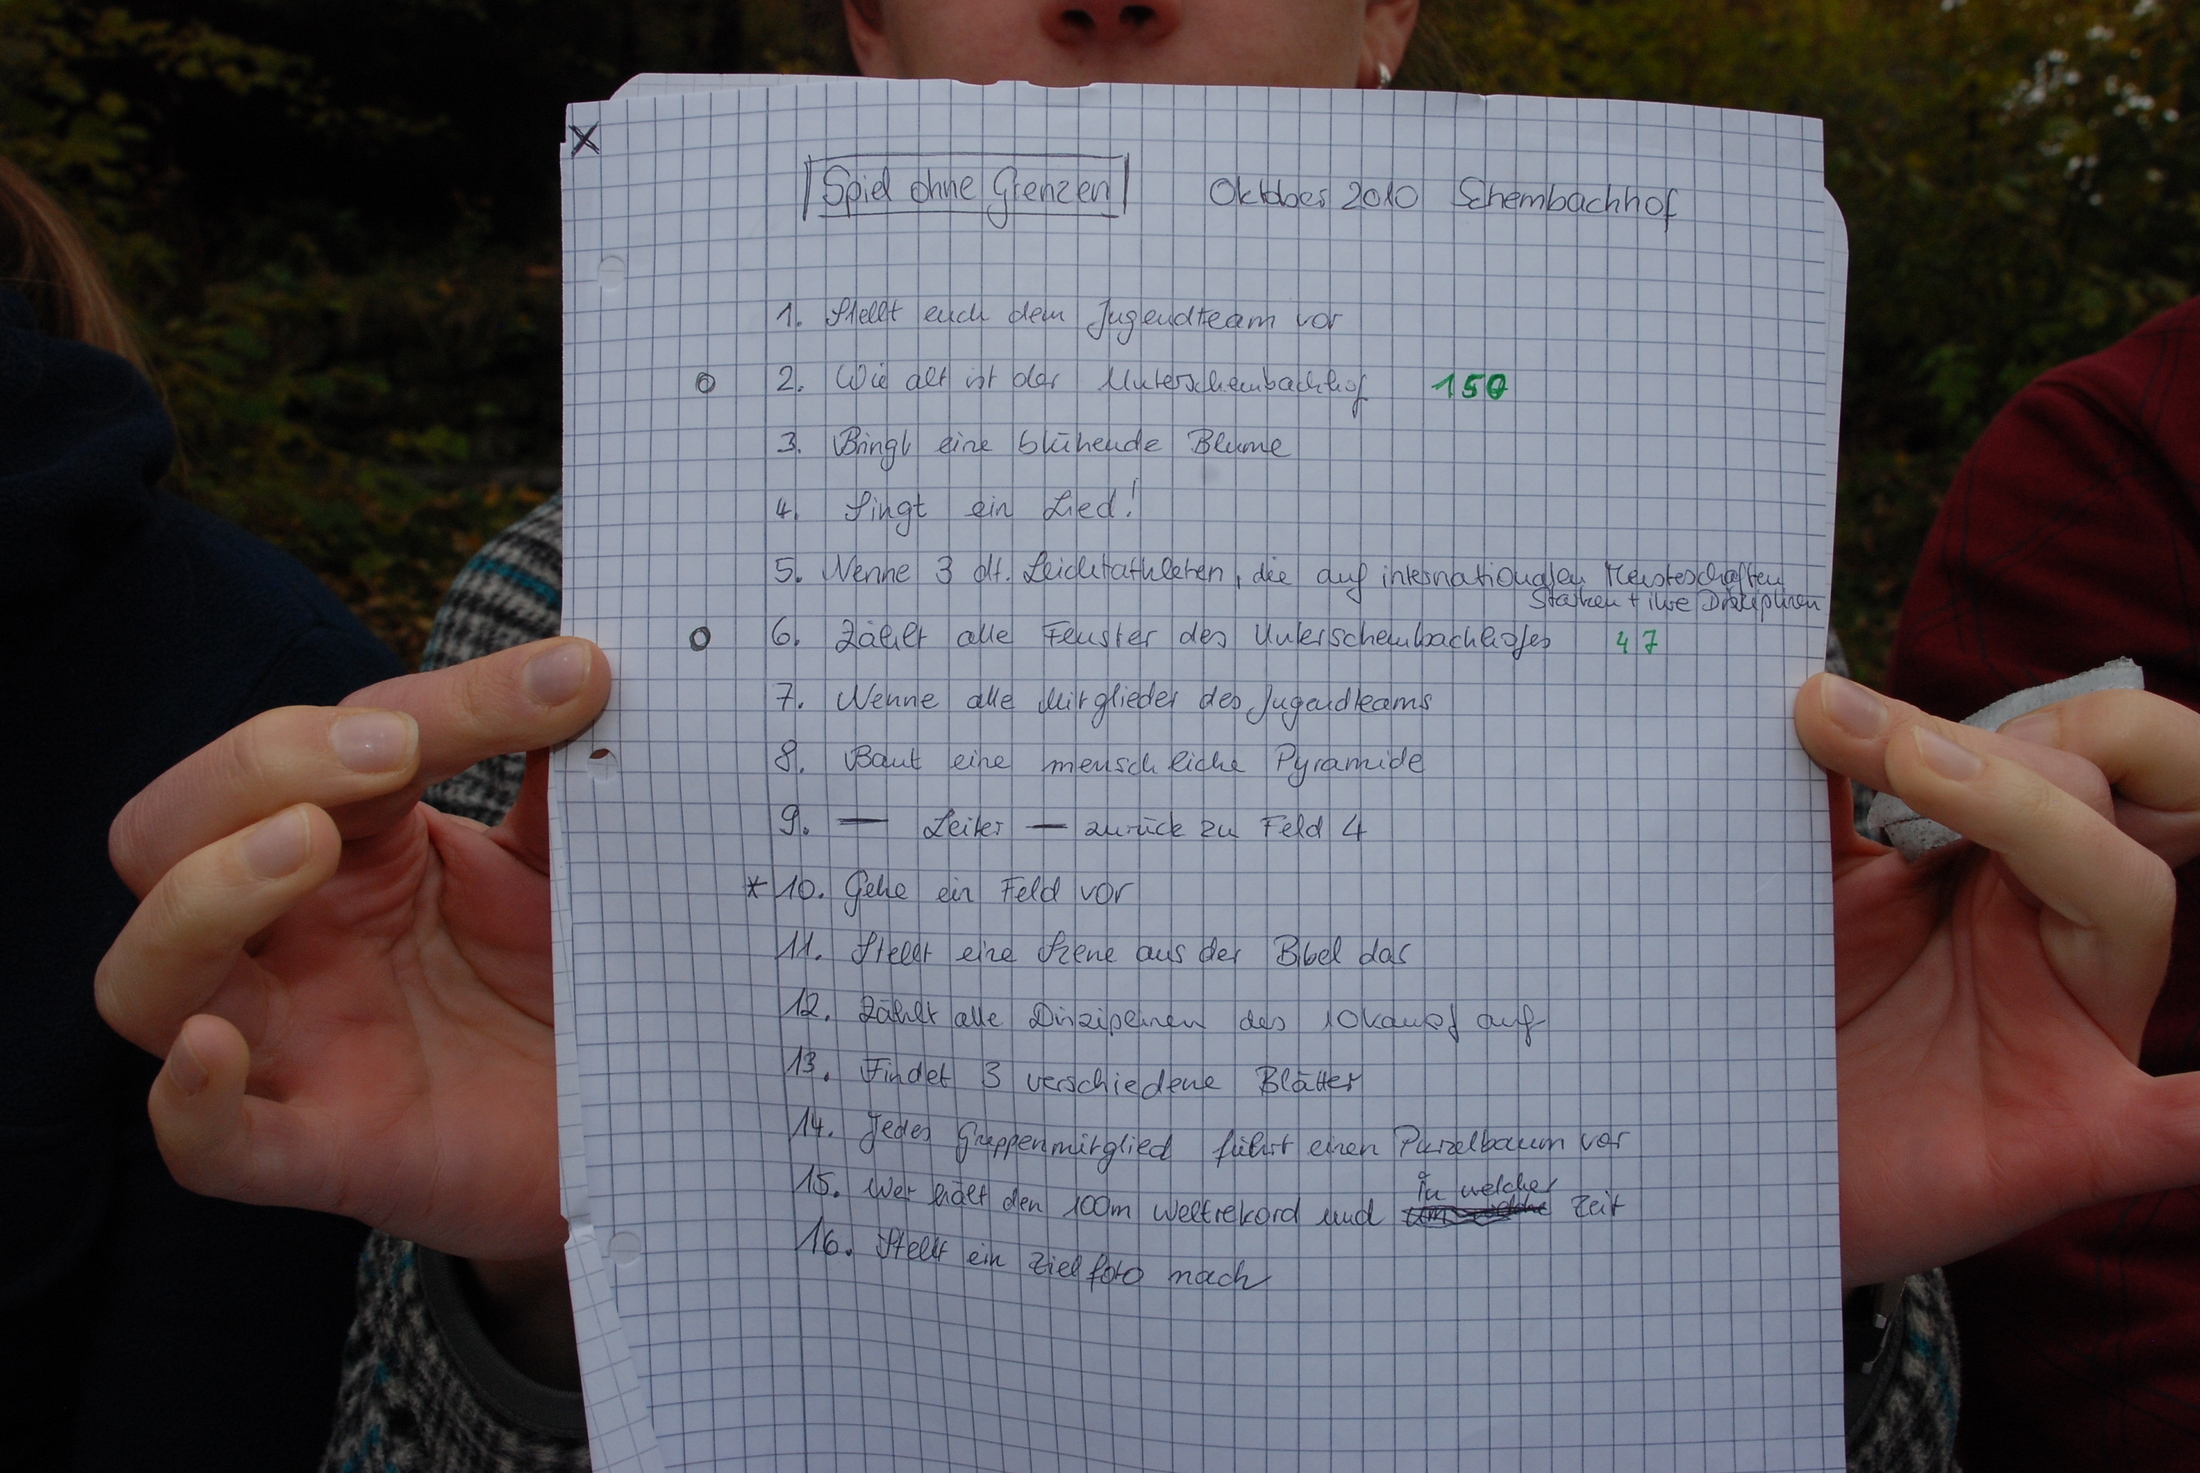 X
Spiel ohne Grenzen Oktober 2010 Schembachhof
1. Stellt euch dem Jugendteam vor
o 2. Wie alt ist der Unterschembachhof 150
3. Bringt eine blühende Blume
4. Singt ein Lied!
5. Nenne 3 dt. Leichtathleten, die auf internationalen Meisterschaften
starten + ihre Disziplinen
o 6. Zählt alle Fenster des Unterschembachhofes 47
7. Nenne alle Mitglieder des Jugendteams
8. Baut eine menschliche Pyramide
9. — Leiter — zurück zu Feld 4
* 10. Gehe ein Feld vor
11. Stellt eine Szene aus der Bibel dar
12. Zählt alle Disziplinen des 10kampf auf
13. Findet 3 verschiedene Blätter
14. Jedes Gruppenmitglied führt einen Purzelbaum vor
15. Wer hält den 100m Weltrekord und in welcher Zeit
16. Stellt ein Zielfoto nach